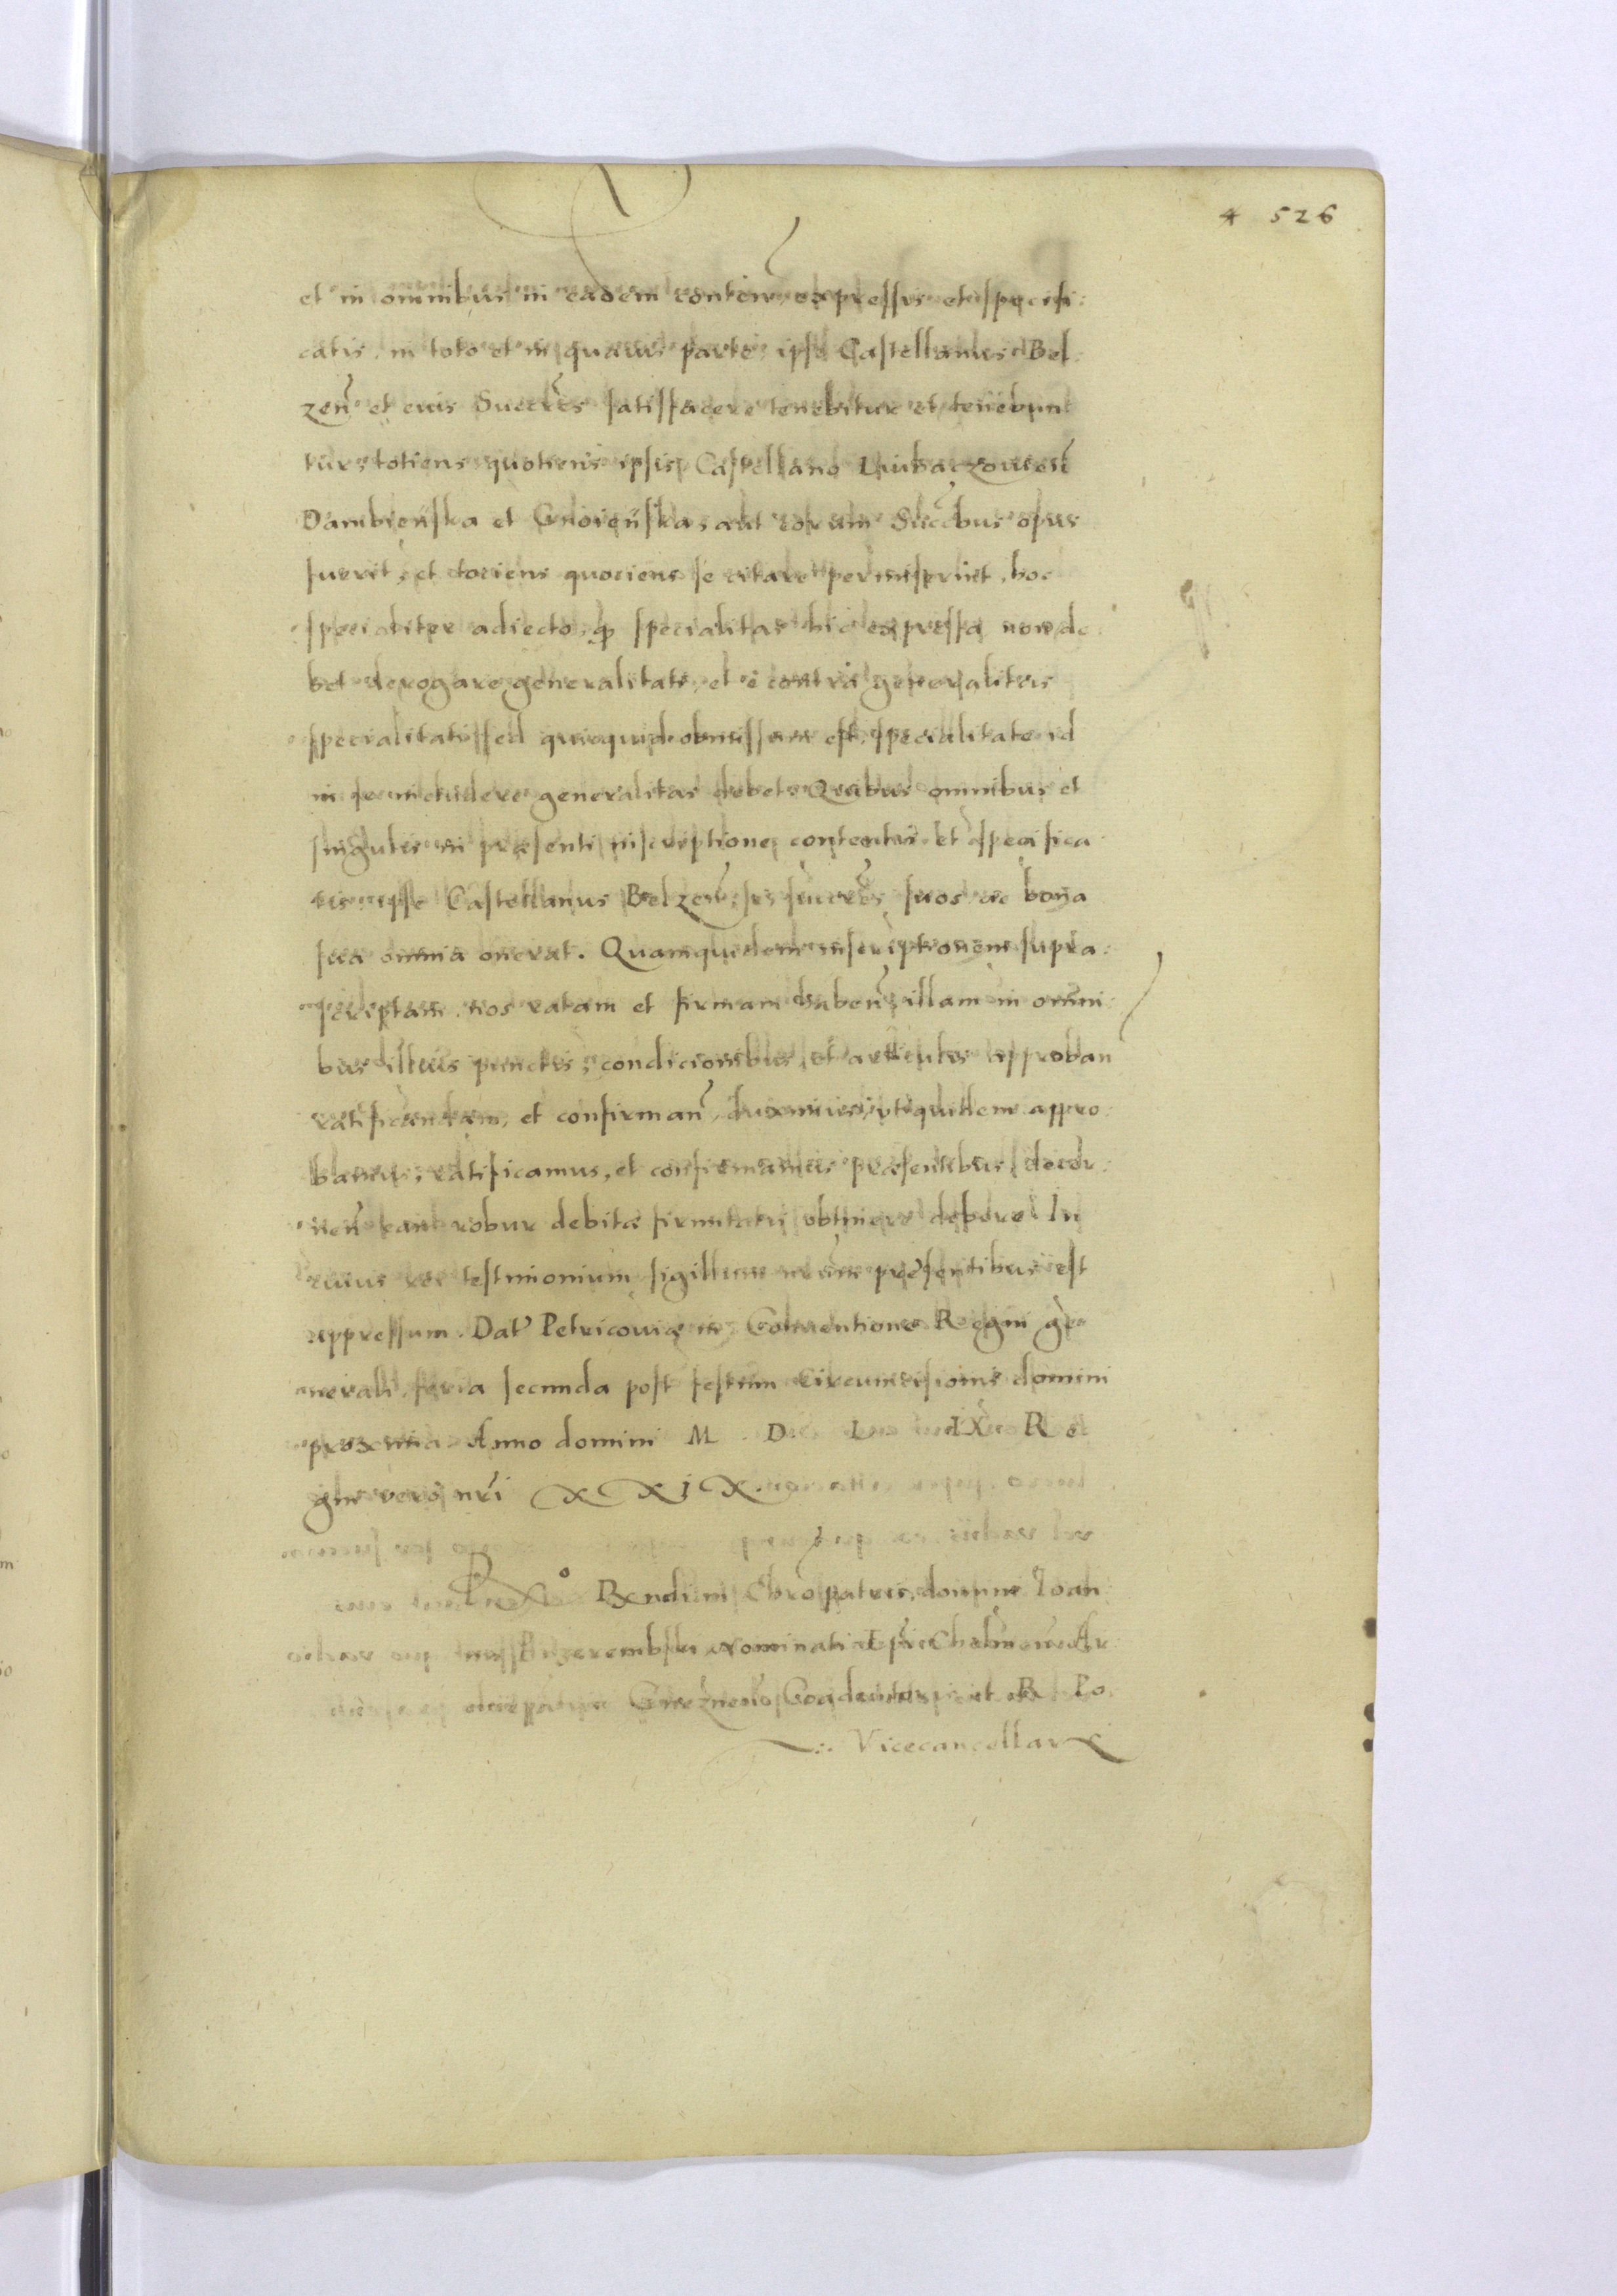 4 526
et in omnibus in eadem conteñ expressis et specifi:
catis, in toto et in quauis parte, ipse Castellanus Bel:
zeñ et eius Succr̃es satisfacere tenebitur et tenebun
tur, totiens quotiens ipsis Castellano Liubaczovieñ
Dambieńska et Gnoieńska, aut eorum Succ̃bus opus
fuerit, et tociens quociens se citare permiserint, hoc
specialiter adiecto, q̃ specialitas hic expressa non de
bet derogare generalitati, et e contra generalitas
specialitati, sed quicquid obmissum est, specialitate id
in se includere generalitas debet. Quibus omnibus et
singulis in præsenti inscriptione contentis et specifica
tis ipse Castellanus Belzeñ, se, succr̃es suos ac bona
sua omnia onerat. Quamquidem inscriptionem supra:
scriptam, nos ratam et firmam habeñ, illam in omni
bus illius punctis, condicionibus, et articulis approban
ratificandam, et confirmañ, duximus, vtiquidem appro:
bamus, ratificamus, et confirmamus præsentibus, decer:
neñ eam robur debitæ firmitatis obtinere debere. In
cuius rei testimonium sigillum nr̃um præsentibus est
appressum. Dat̃ Petricoviæ in Conventione Regni ge
nerali, feria secunda post festum Circumcisionis domini
proxima. Anno domini M. D. L. IX. Re
gni vero nr̃i XXIX.
Rx̃ndi in Chr̃o patris, domini Ioan
nis Przerembski Nominati Archie
Gnezneñ, Coadiutoris et R. Po.
Vicecancellar